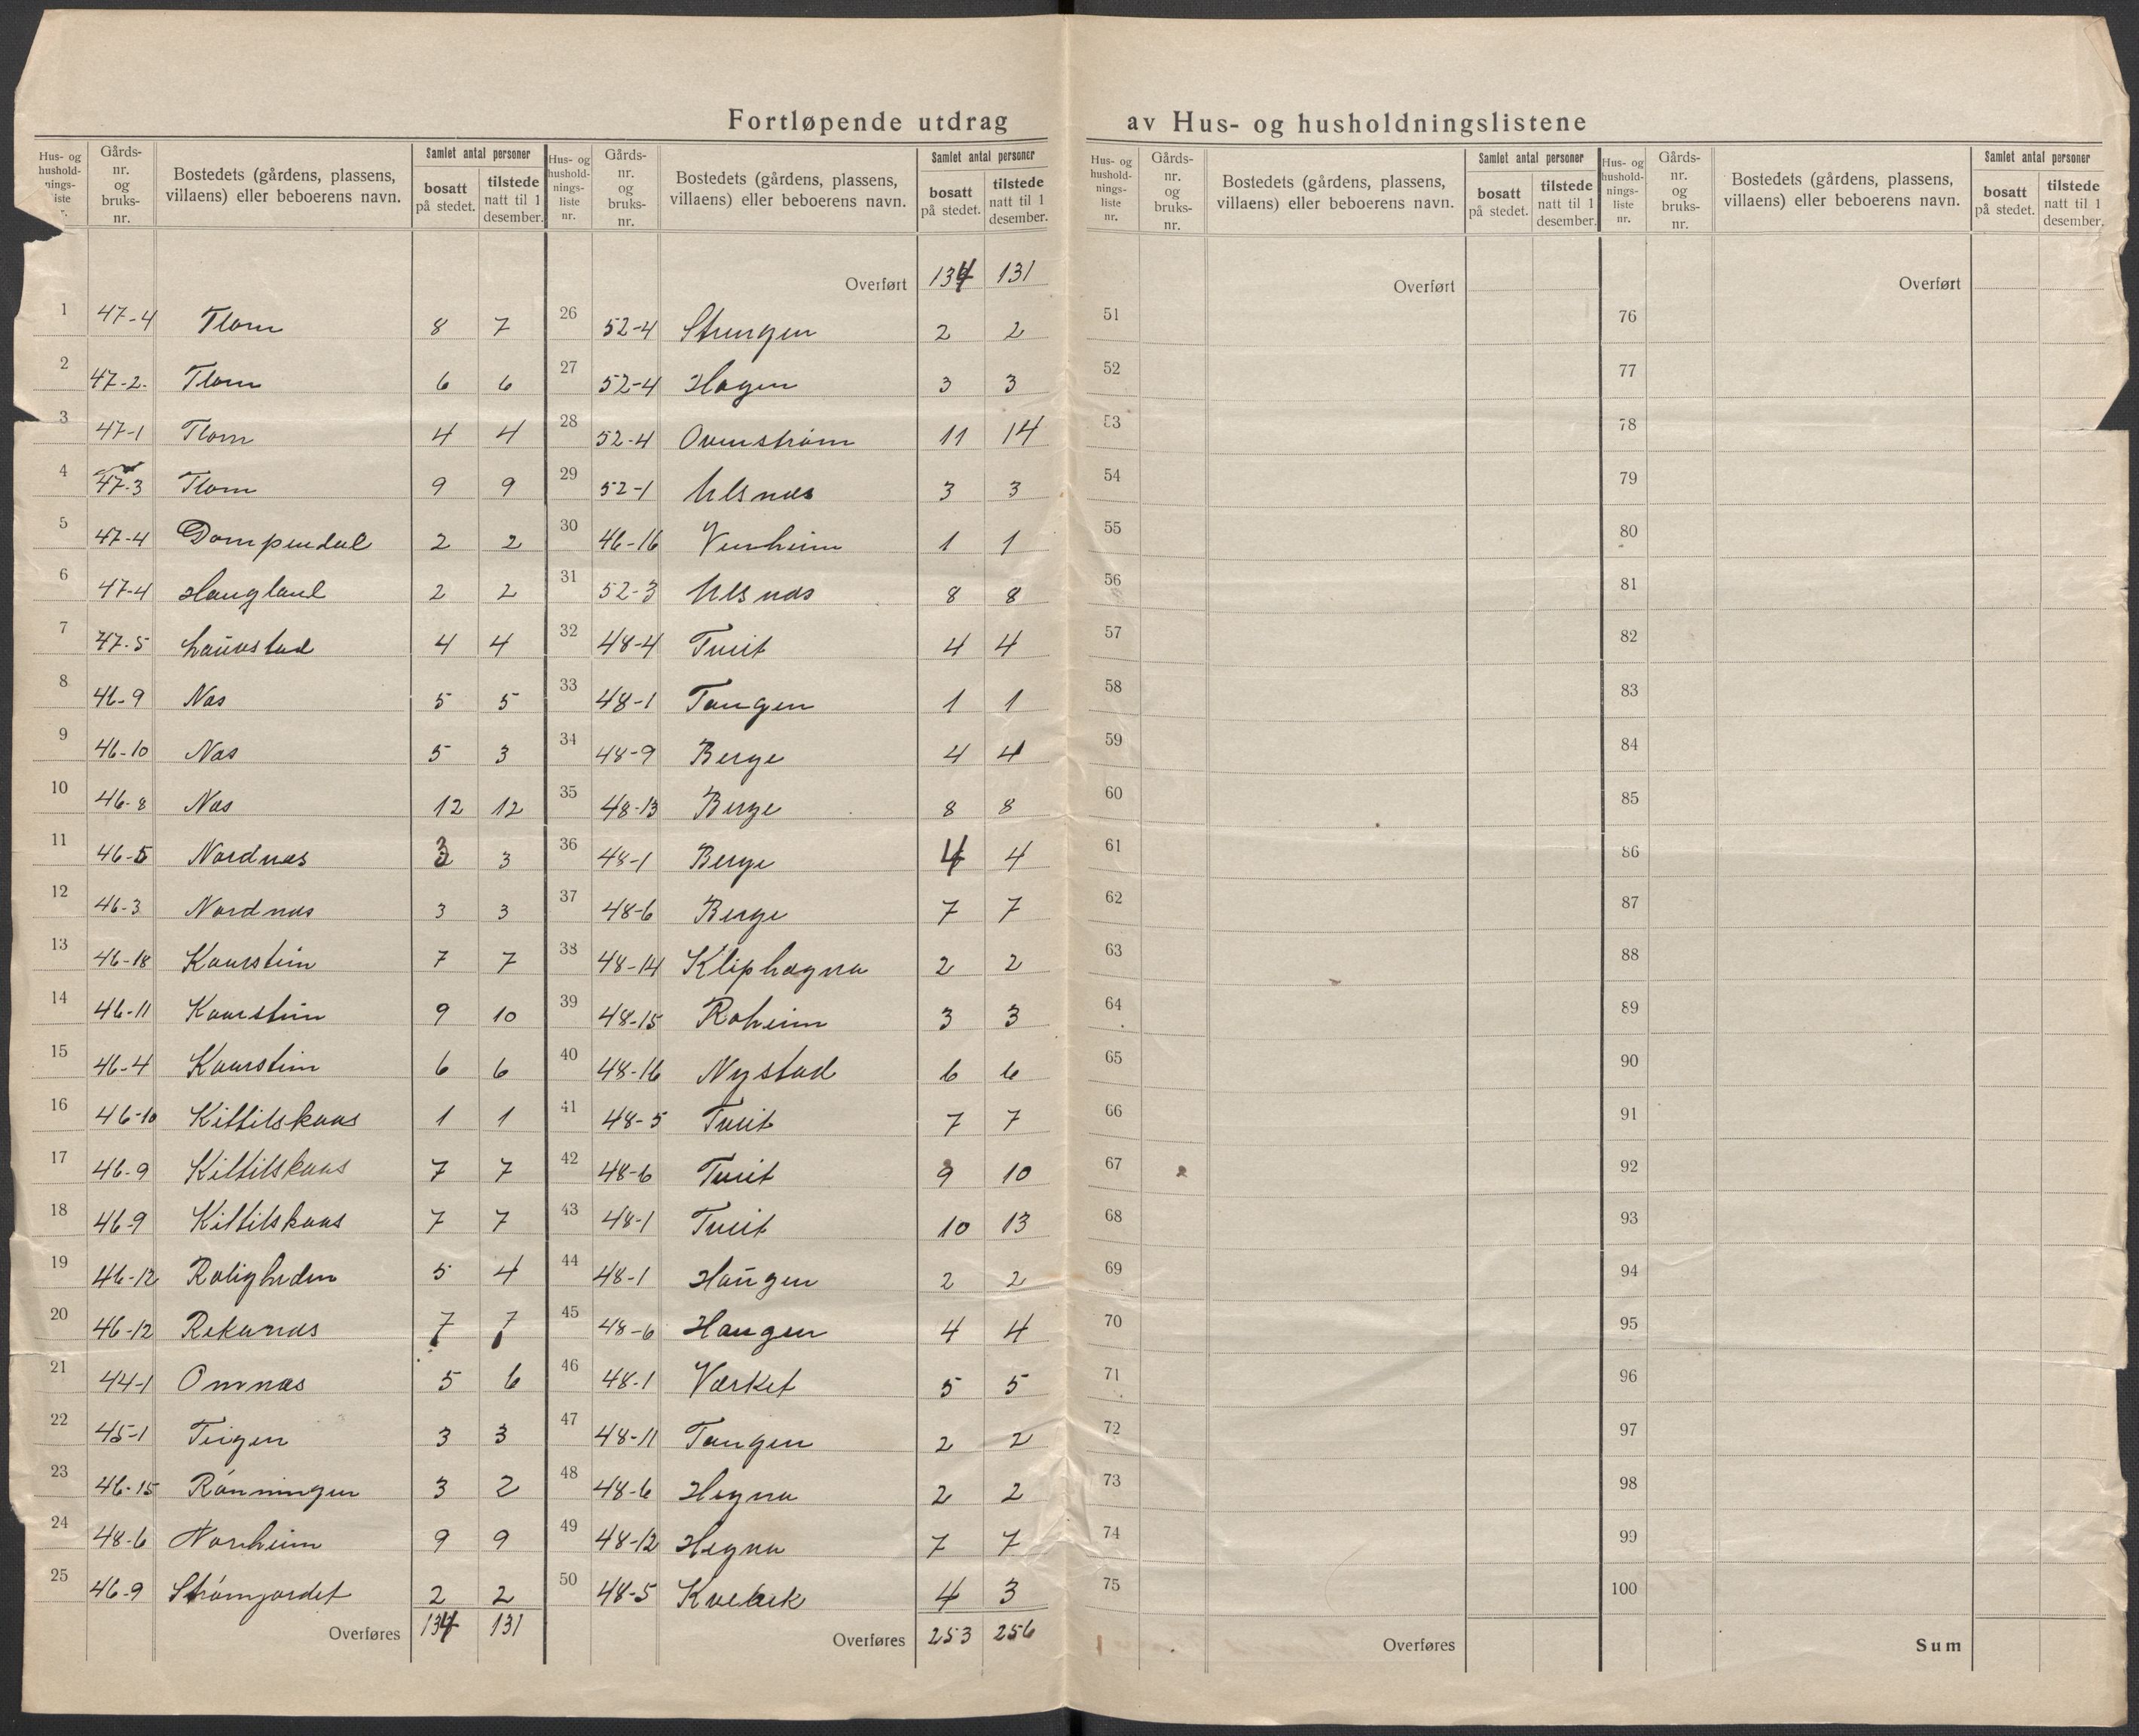 Fortløpende utdrag av Hus- og husholdningslistene
Hus- og hushold-nings-liste nr. | Gårds-nr. og bruks-nr. | Bostedets (gårdens, plassens, villaens) eller beboerens navn. | Samlet antal personer | bosatt på stedet. | tilstede natt til 1 desember.
1 47-4 Flom 8 7
2 47-2. Flom 6 6
3 47-1 Flom 4 4
4 47-3 Flom 9 9
5 47-4 Dompendal 2 2
6 47-4 Haugland 2 2
7 47-5 Laŭvstad 4 4
8 46-9 Nas 5 5
9 46-10 Nas 5 3
10 46-8 Nas 12 12
11 46-5 Nordnas 3 3
12 46-3 Nordnas 3 3
13 46-18 Kaasstein 7 7
14 46-11 Kaasstein 9 10
15 46-4 Kaasstein 6 6
16 46-10 Kittilskaas 1 1
17 46-9 Kittilskaas 7 7
18 46-9 Kittilskaas 7 7
19 46-12 Roligheden 5 4
20 46-12 Rekanas 7 7
21 44-1 Omnas 5 6
22 45-1 Teigen 3 3
23 46-15 Rónningen 3 2
24 48-6 Norheim 9 9
25 46-9 Strómjordet 2 2
Overføres 134 131
Hus- og hushold-nings-liste nr. | Gårds-nr. og bruks-nr. | Bostedets (gårdens, plassens, villaens) eller beboerens navn. | Samlet antal personer | bosatt på stedet. | tilstede natt til 1 desember.
Overført 134 131
26 52-4 Strengen 2 2
27 52-4 Hagen 3 3
28 52-4 Ovenstróm 11 14
29 52-1 Ulsnas 3 3
30 46-16 Venheim 1 1
31 52-3 Ulsnas 8 8
32 48-4 Tveit 4 4
33 48-1 Tangen 1 1
34 48-9 Berge 4 4
35 48-13 Berge 8 8
36 48-1 Berge 4 4
37 48-6 Berge 7 7
38 48-14 Kliphagna 2 2
39 48-15 Roheim 3 3
40 48-16 Nystad 6 6
41 48-5 Tveit 7 7
42 48-6 Tveit 9 10
43 48-1 Tveit 10 13
44 48-1 Haŭgen 2 2
45 48-6 Haugen 4 4
46 48-1 Værket 5 5
47 48-11 Tangen 2 2
48 48-6 Hegna 2 2
49 48-12 Hegna 7 7
50 48-5 Kvebek 4 3
Overføres 253 256
Hus- og hushold-nings-liste nr. | Gårds-nr. og bruks-nr. | Bostedets (gårdens, plassens, villaens) eller beboerens navn. | Samlet antal personer | bosatt på stedet. | tilstede natt til 1 desember.
Overført
51
52
53
54
55
56
57
58
59
60
61
62
63
64
65
66
67
68
69
70
71
72
73
74
75
Overføres
Hus- og hushold-nings-liste nr. | Gårds-nr. og bruks-nr. | Bostedets (gårdens, plassens, villaens) eller beboerens navn. | Samlet antal personer | bosatt på stedet. | tilstede natt til 1 desember.
Overført
76
77
78
79
80
81
82
83
84
85
86
87
88
89
90
91
92
93
94
95
96
97
98
99
100
Sum